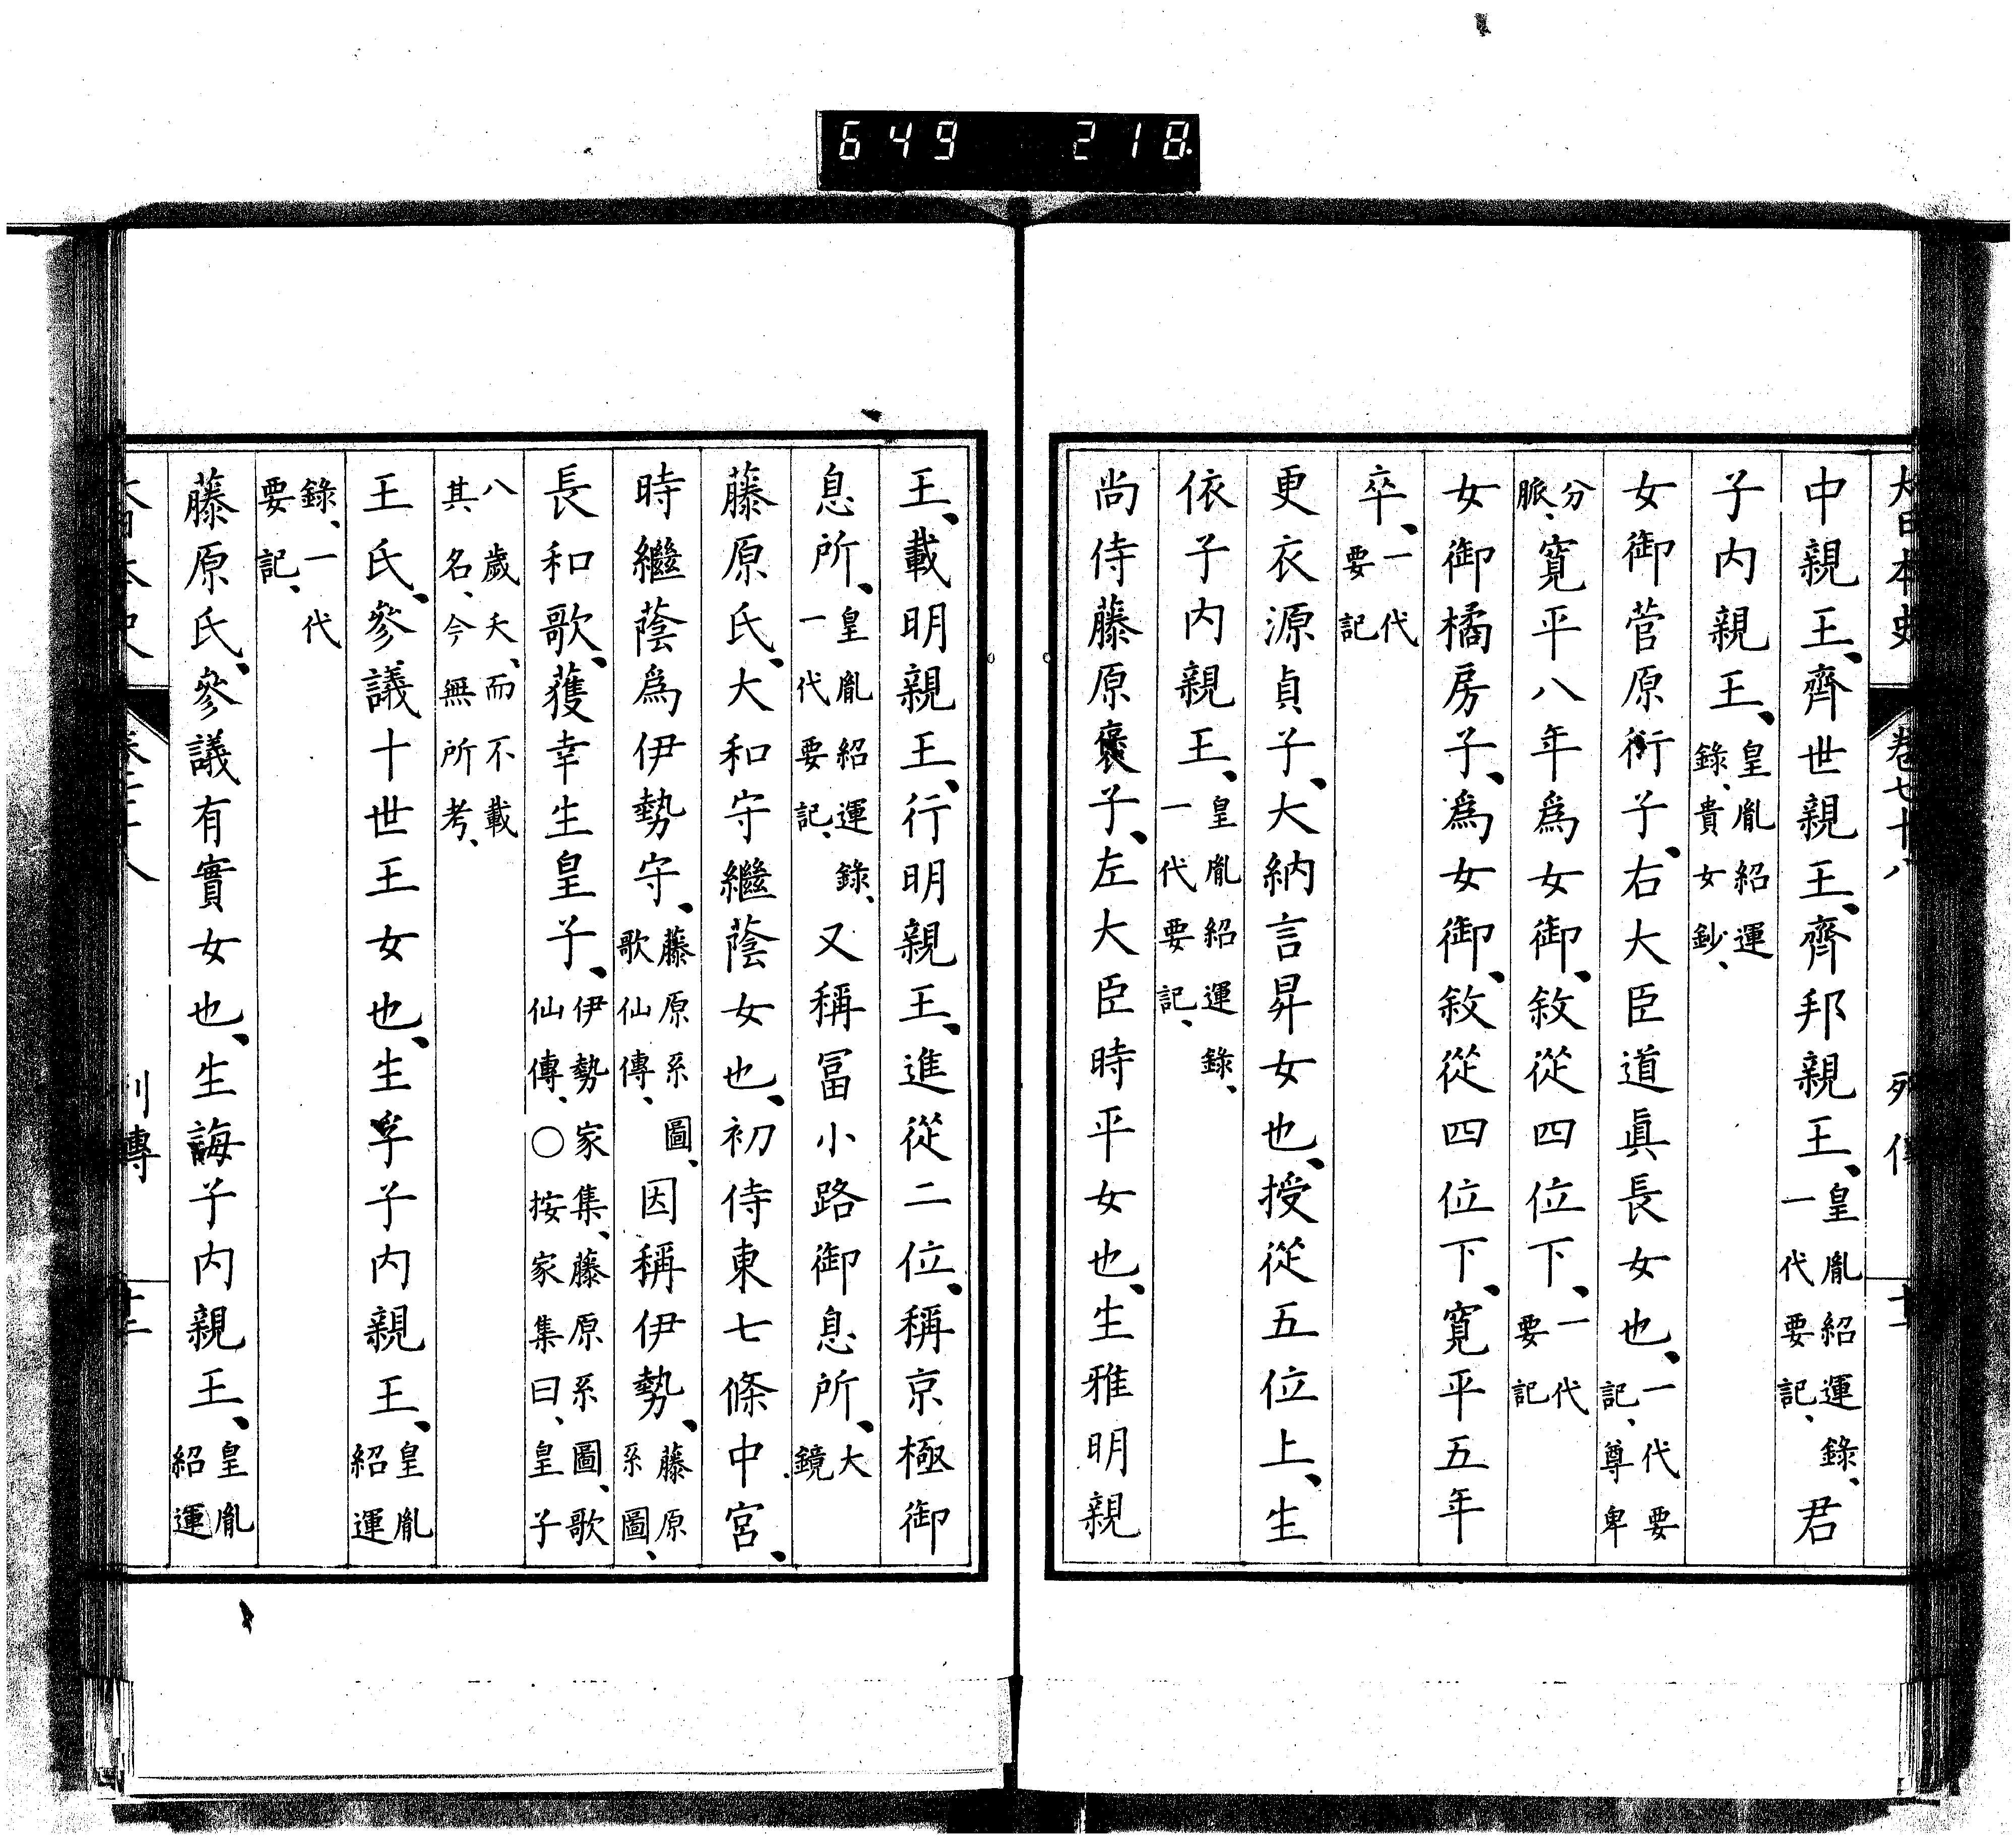 649 218
大日本史 卷七十八 列傳 十一
中親王、齊世親王、齊邦親王、皇胤紹運錄、一代要記、君
子内親王、皇胤紹運錄、貴女鈔、
女御菅原衍子、右大臣道眞長女也、一代要記、尊卑
分脈、寬平八年爲女御、敘從四位下、一代要記
女御橘房子、爲女御、敘從四位下、寬平五年
卒、一代要記
更衣源貞子、大納言昇女也、授從五位上、生
依子内親王、皇胤紹運錄、一代要記、
尚侍藤原褒子、左大臣時平女也、生雅明親
王、載明親王、行明親王、進從二位、稱京極御
息所、皇胤紹運錄、一代要記、又稱冨小路御息所、大鏡
藤原氏、大和守繼蔭女也、初侍東七條中宮、
時繼蔭爲伊勢守、藤原系圖、歌仙傳、因稱伊勢、藤原系圖、
長和歌、獲幸生皇子、伊勢家集、藤原系圖、歌仙傳、○按家集曰、皇子
八歲夭、而不載其名、今無所考、
王氏、參議十世王女也、生孚子内親王、皇胤紹運
錄、一代要記、
藤原氏、參議有實女也、生誨子内親王、皇胤紹運
列傳